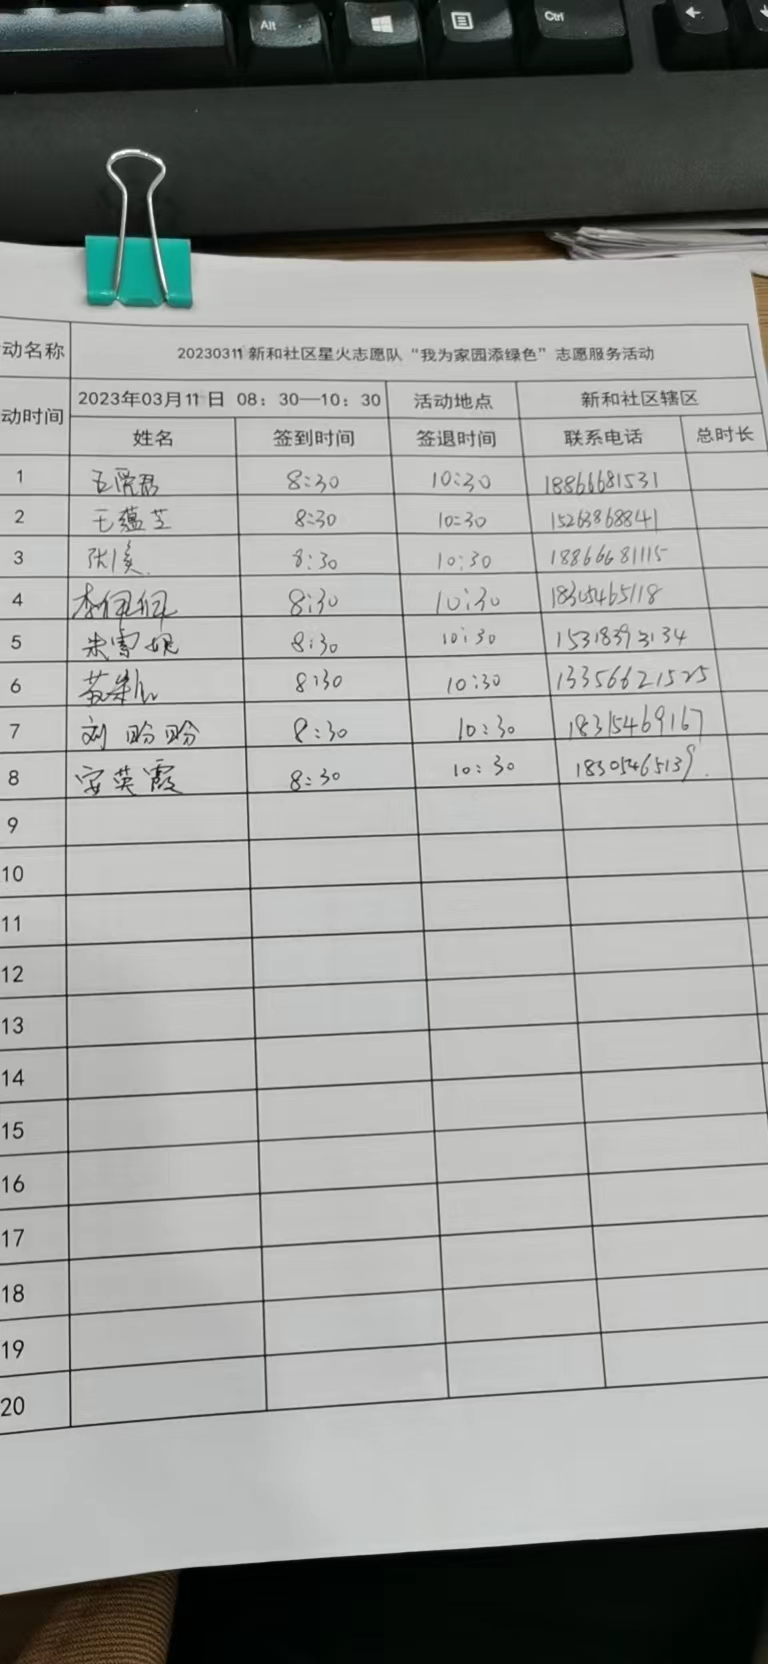 Alt
Ctrl
动名称 20230311新和社区星火志愿队“我为家园添绿色”志愿服务活动
动时间 2023年03月11日 08：30—10：30 活动地点 新和社区辖区
姓名 签到时间 签退时间 联系电话 总时长
1 8:30 10:30 18866681531
2 王蕴芝 8:30 10:30 15263868841
3 8:30 10:30 18866681115
4 李佩佩 8:30 10:30 18305465118
5 朱雪妮 8:30 10:30 15318393134
6 8:30 10:30 13356621525
7 刘盼盼 8:30 10:30 18315469167
8 安英霞 8:30 10:30 18305465139
9
10
11
12
13
14
15
16
17
18
19
20